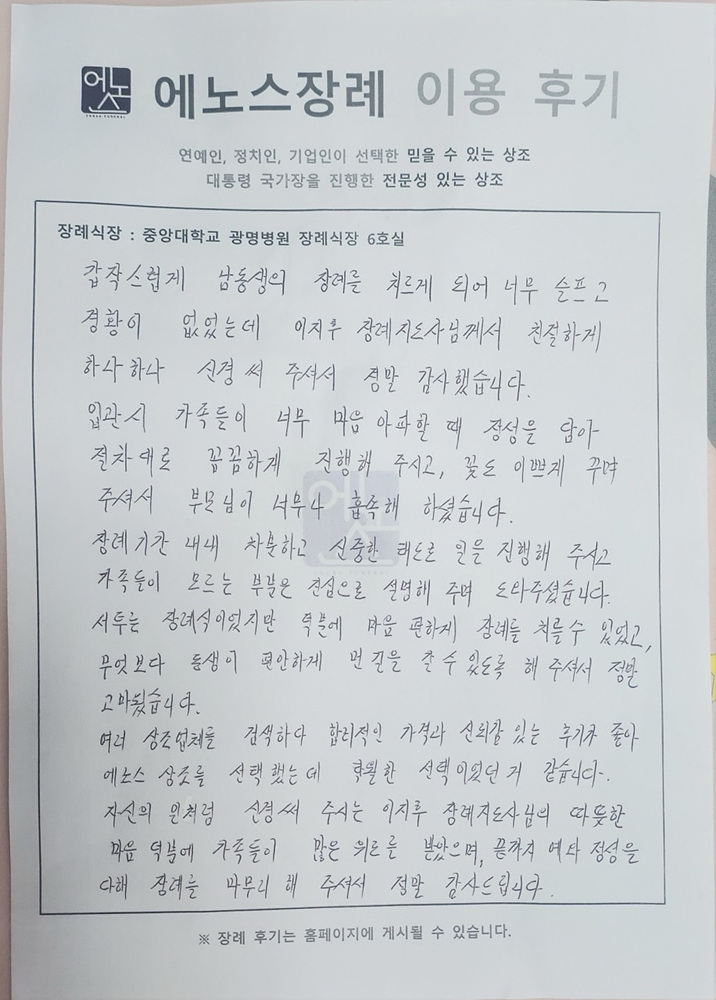 에노스
에노스장례 이용 후기
연예인, 정치인, 기업인이 선택한 믿을 수 있는 상조
대통령 국가장을 진행한 전문성 있는 상조
장례식장 : 중앙대학교 광명병원 장례식장 6호실
갑작스럽게 남동생의 장례를 치르게 되어 너무 슬프고
경황이 없었는데 이지후 장례지도사님께서 친절하게
하나하나 신경 써 주셔서 정말 감사했습니다.
입관시 가족들이 너무 마음 아파할 때 정성을 담아
절차대로 꼼꼼하게 진행해 주시고, 꽃도 이쁘게 꾸며
주셔서 부모님이 너무나 흡족해 하셨습니다.
장례기간 내내 차분하고 신중한 태도로 일을 진행해 주시고
가족들이 모르는 부분은 진심으로 설명해 주며 도와주셨습니다.
서투른 장례식이었지만 덕분에 마음 편하게 장례를 치를 수 있었고,
무엇보다 동생이 편안하게 먼 길을 갈 수 있도록 해 주셔서 정말
고마웠습니다.
여러 상조업체를 검색하다 합리적인 가격과 신뢰감 있는 후기가 좋아
에노스 상조를 선택했는데 탁월한 선택이었던 거 같습니다.
자신의 일처럼 신경써 주시는 이지후 장례지도사님의 따뜻한
마음 덕분에 가족들이 많은 위로를 받았으며, 끝까지 예와 정성을
다해 장례를 마무리 해 주셔서 정말 감사드립니다.
※ 장례 후기는 홈페이지에 게시될 수 있습니다.